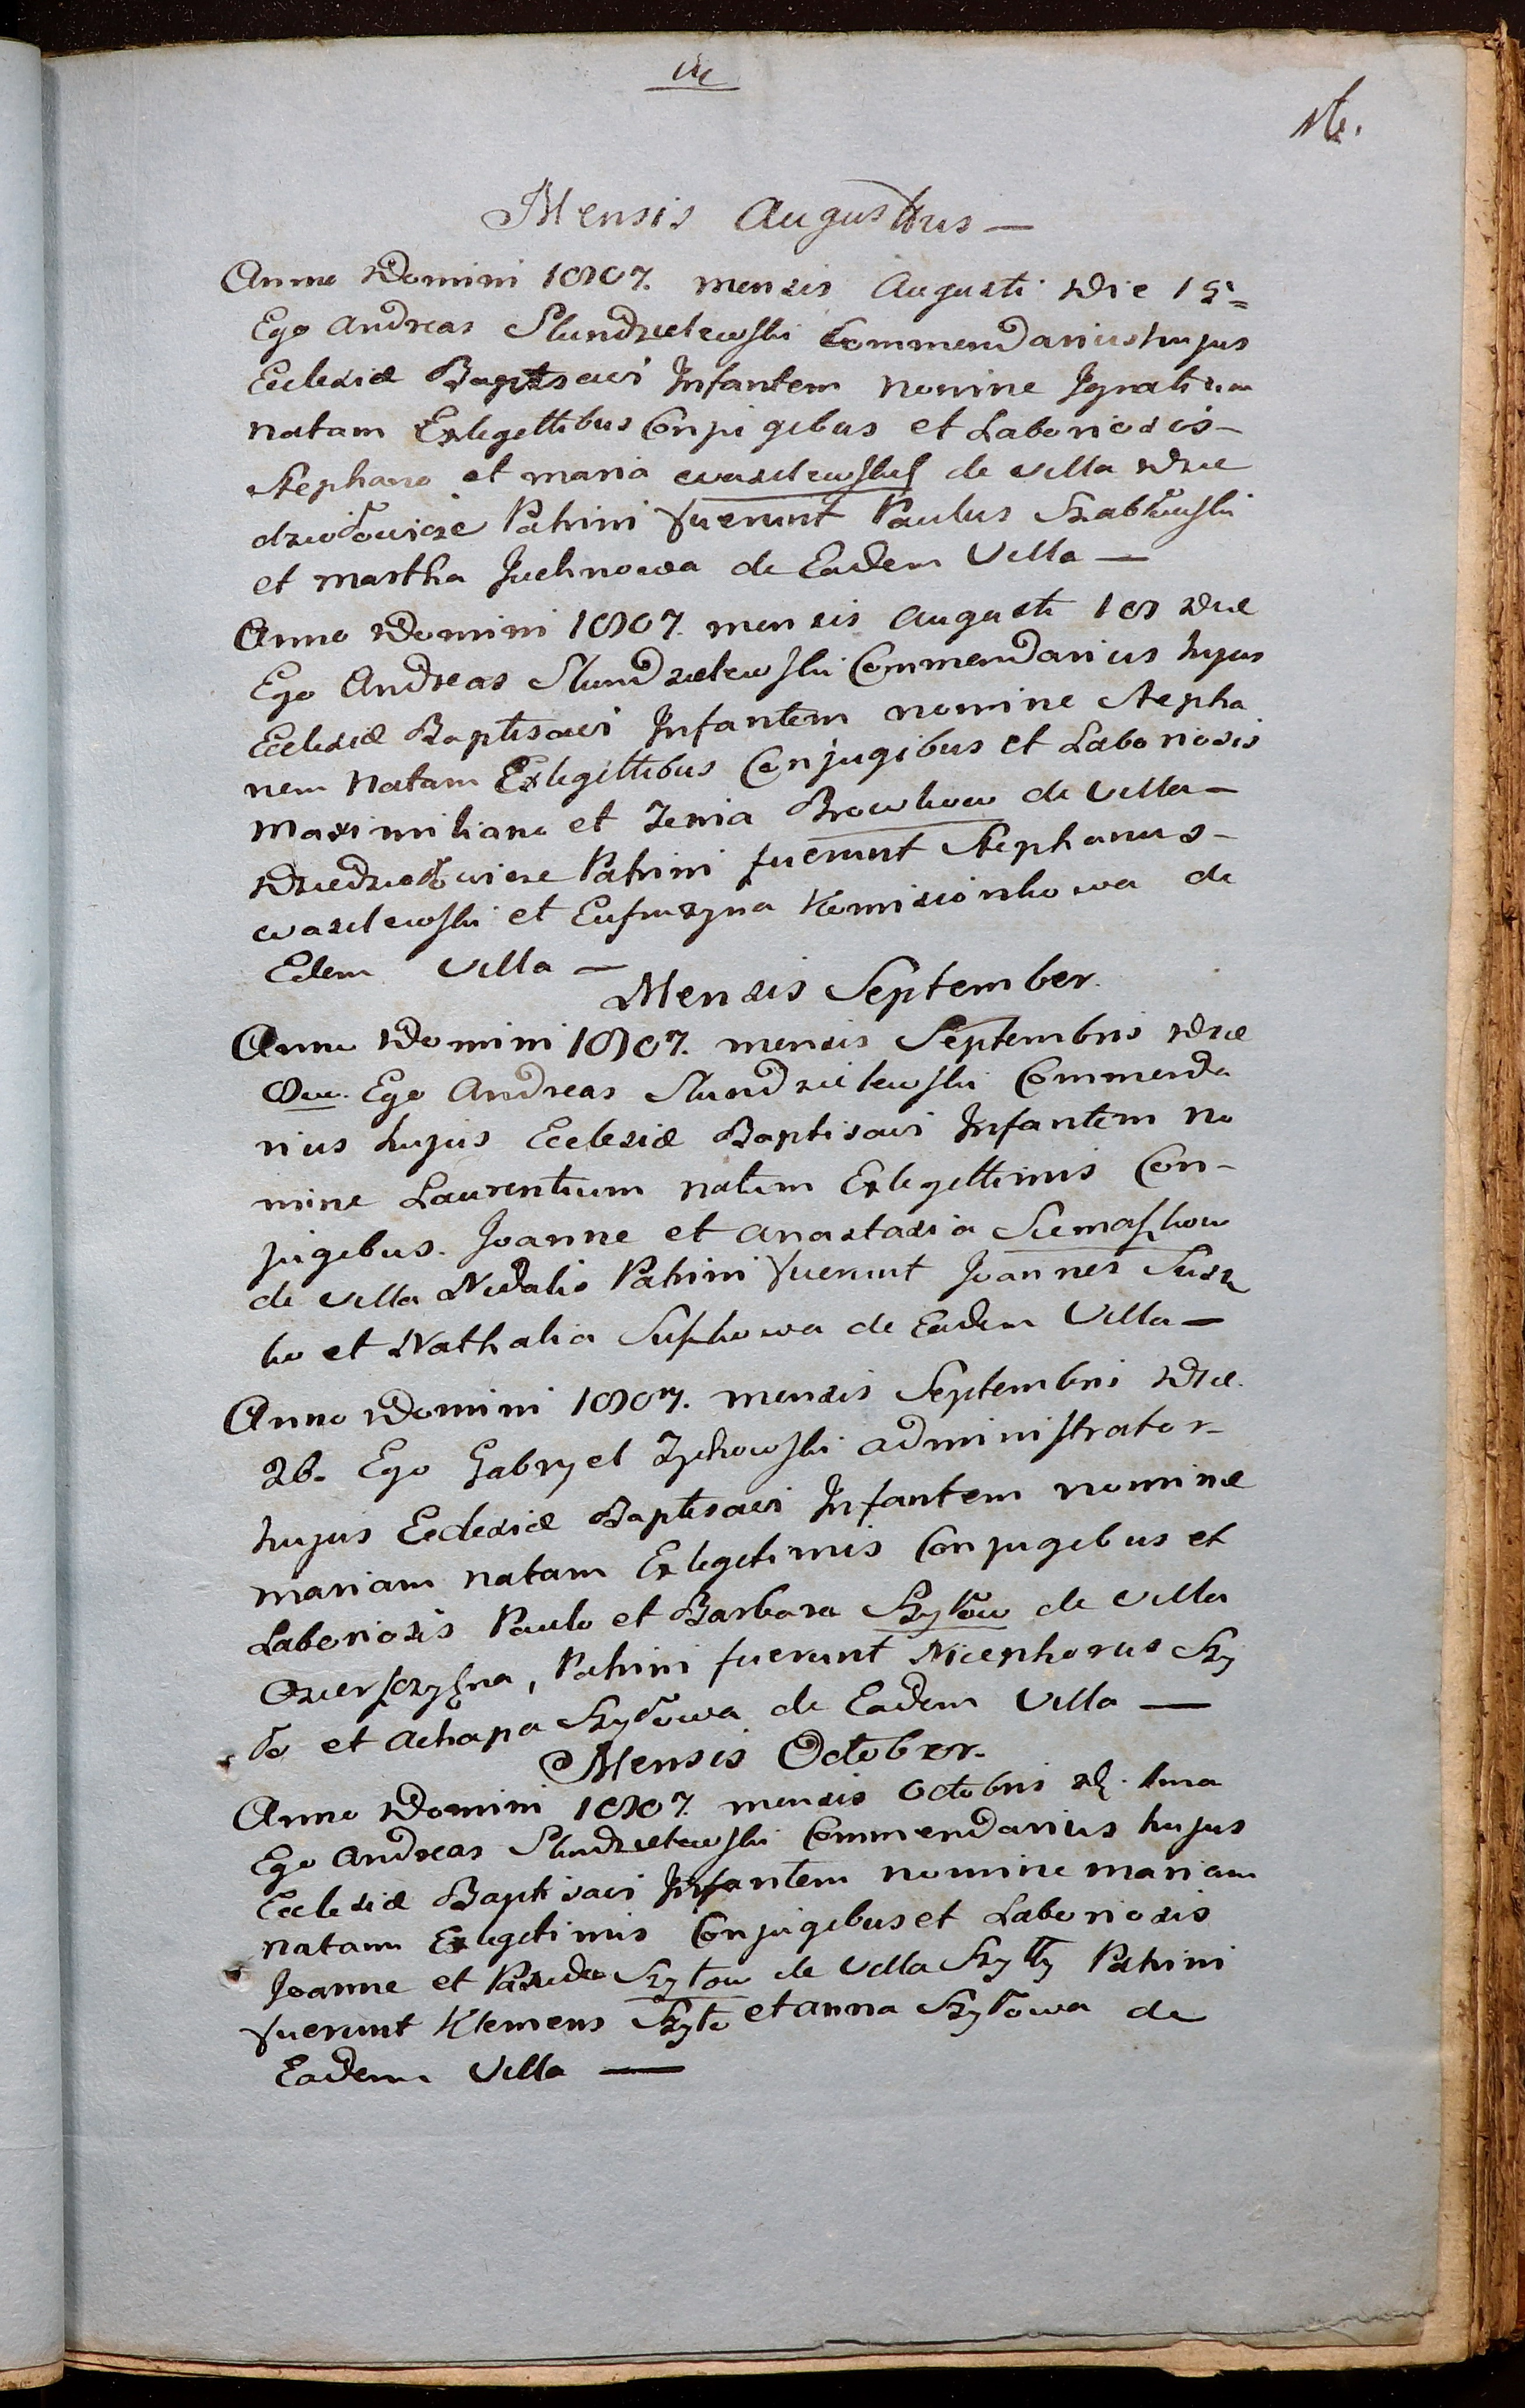 16.
Mensis Augustus —
Anno Domini 1807. mensis Augusti Die 15
Ego Andreas Slundzielewski Commendarius hujus
Eclesiæ Baptisavi Infantem nomine Ignatium
natam Exlegittibus Conjugibus et Laboriosis –
Stephano et Maria de Villa Dzie
dziołowicze Patrini fuerunt Paulus Szabłowski
et Martha Juchnowa de Eadem Villa —
Anno Domini 1807. mensis Augusti 18 Die
Ego Andreas Slundzielewski Commendarius hujus
Eclesiæ Baptisavi Infantem nomine Stepha
nem Natam Exlegittibus Conjugibus et Laboriosis
Maximiliano et Zenia de Villa –
Dziedziołowicze Patrini fuerunt Stephanus –
wasilewski et Eufruzyna Komisionkowa de
Edem Villa —
Mensis September.
Anno Domini 1807. mensis Septembris Die
8va. Ego Andreas Slundzielewski Commenda
rius hujus Eclesiæ Baptisavi Infantem no
mine Laurentium natum Exlegittimis Con-
jugibus. Joanne et Anastasia Siemaszkow
de Villa Patrini fuerunt Joannes Susz
ko et Nathalia Suszkowa de Eadem Villa —
Anno Domini 1807. mensis Septembris Die.
26. Ego Gabryel Zychowski administrator –
hujus Eclesiæ Baptisavi Infantem nomine
Mariam natam Exlegitimis Conjugibus et
Laboriosis Paulo et Barbara Szyłow de Villa
Patrini fuerunt Nicephorus Szy
ło et Achapa Szyłowa de Eadem Villa —
Mensis October.
Anno Domini 1807. mensis Octobris d. 1ma
Ego Andreas Slundzielewski Commendarius hujus
Eclesiæ Baptisavi Infantem nomine Mariam
natam Exlegitimis Conjugibus et Laboriosis
Joanne et Szyłow de Villa Szyłły Patrini
fuerunt Klemens Szyło et Anna Szyłowa de
Eadem Villa —